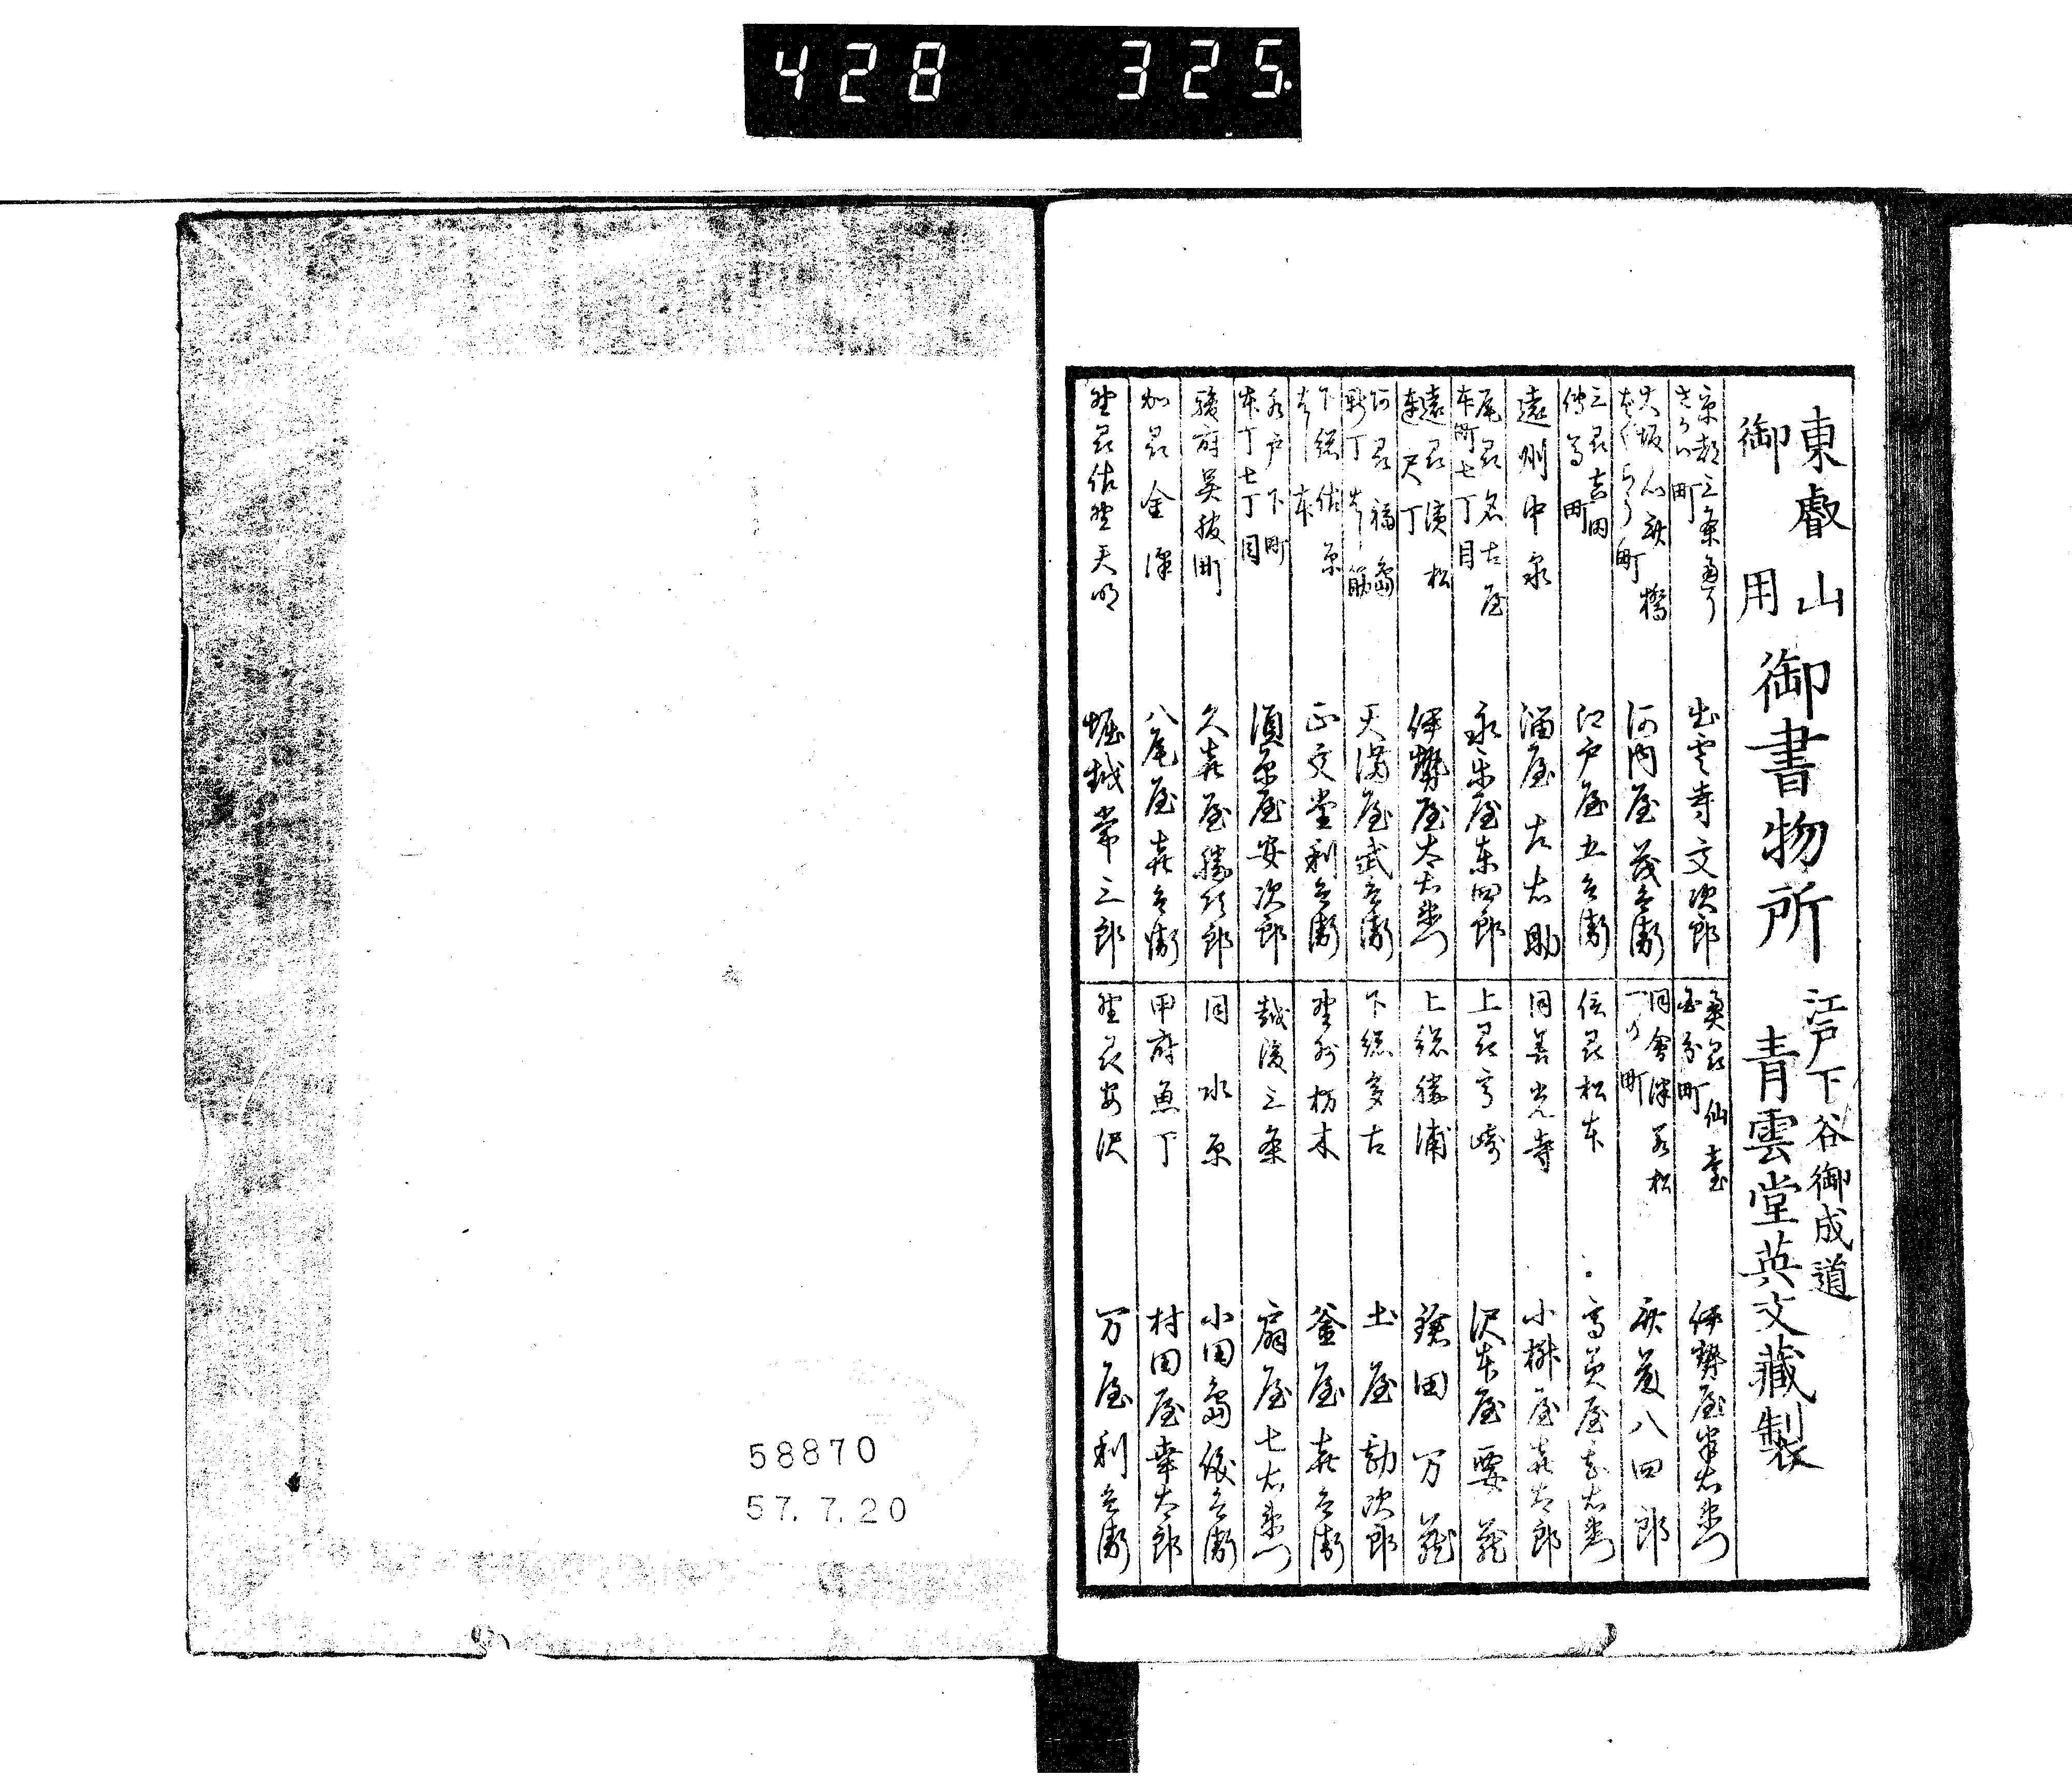 428 325.
東叡山
御用
御書物所
江戸下谷御成道
青雲堂英文藏製
京都三条通り
さかい町
出雲寺文次郎
大坂心斎橋
河内屋茂兵衛
三州吉田
傳馬町
江戸屋五兵衛
遠州中泉
涌屋古右助
尾州名古屋
本町七丁目
永楽屋東四郎
遠州濱松
連尺丁
伊勢屋太右衛門
阿州福島
新丁
天満屋武兵衛
下総佐原
正文堂利兵衛
水戸下町
本丁七丁目
須原屋安次郎
駿府呉服町
久喜屋勝次郎
加州金澤
八尾屋喜兵衛
野州佐野天明
堀越常三郎
奥州仙臺
国分町
伊勢屋半右衛門
同會津若松
一の町
斎藤八四郎
信州松本
高美屋甚右衛門
同善光寺
小桝屋喜太郎
上州高崎
沢本屋要蔵
上総勝浦
鎗田万蔵
下総多古
土屋勘次郎
野州栃木
釜屋喜兵衛
越後三条
扇屋七右衛門
同水原
小田島俵兵衛
甲府魚丁
村田屋幸太郎
野州安沢
万屋利兵衛
58870
57.7.20